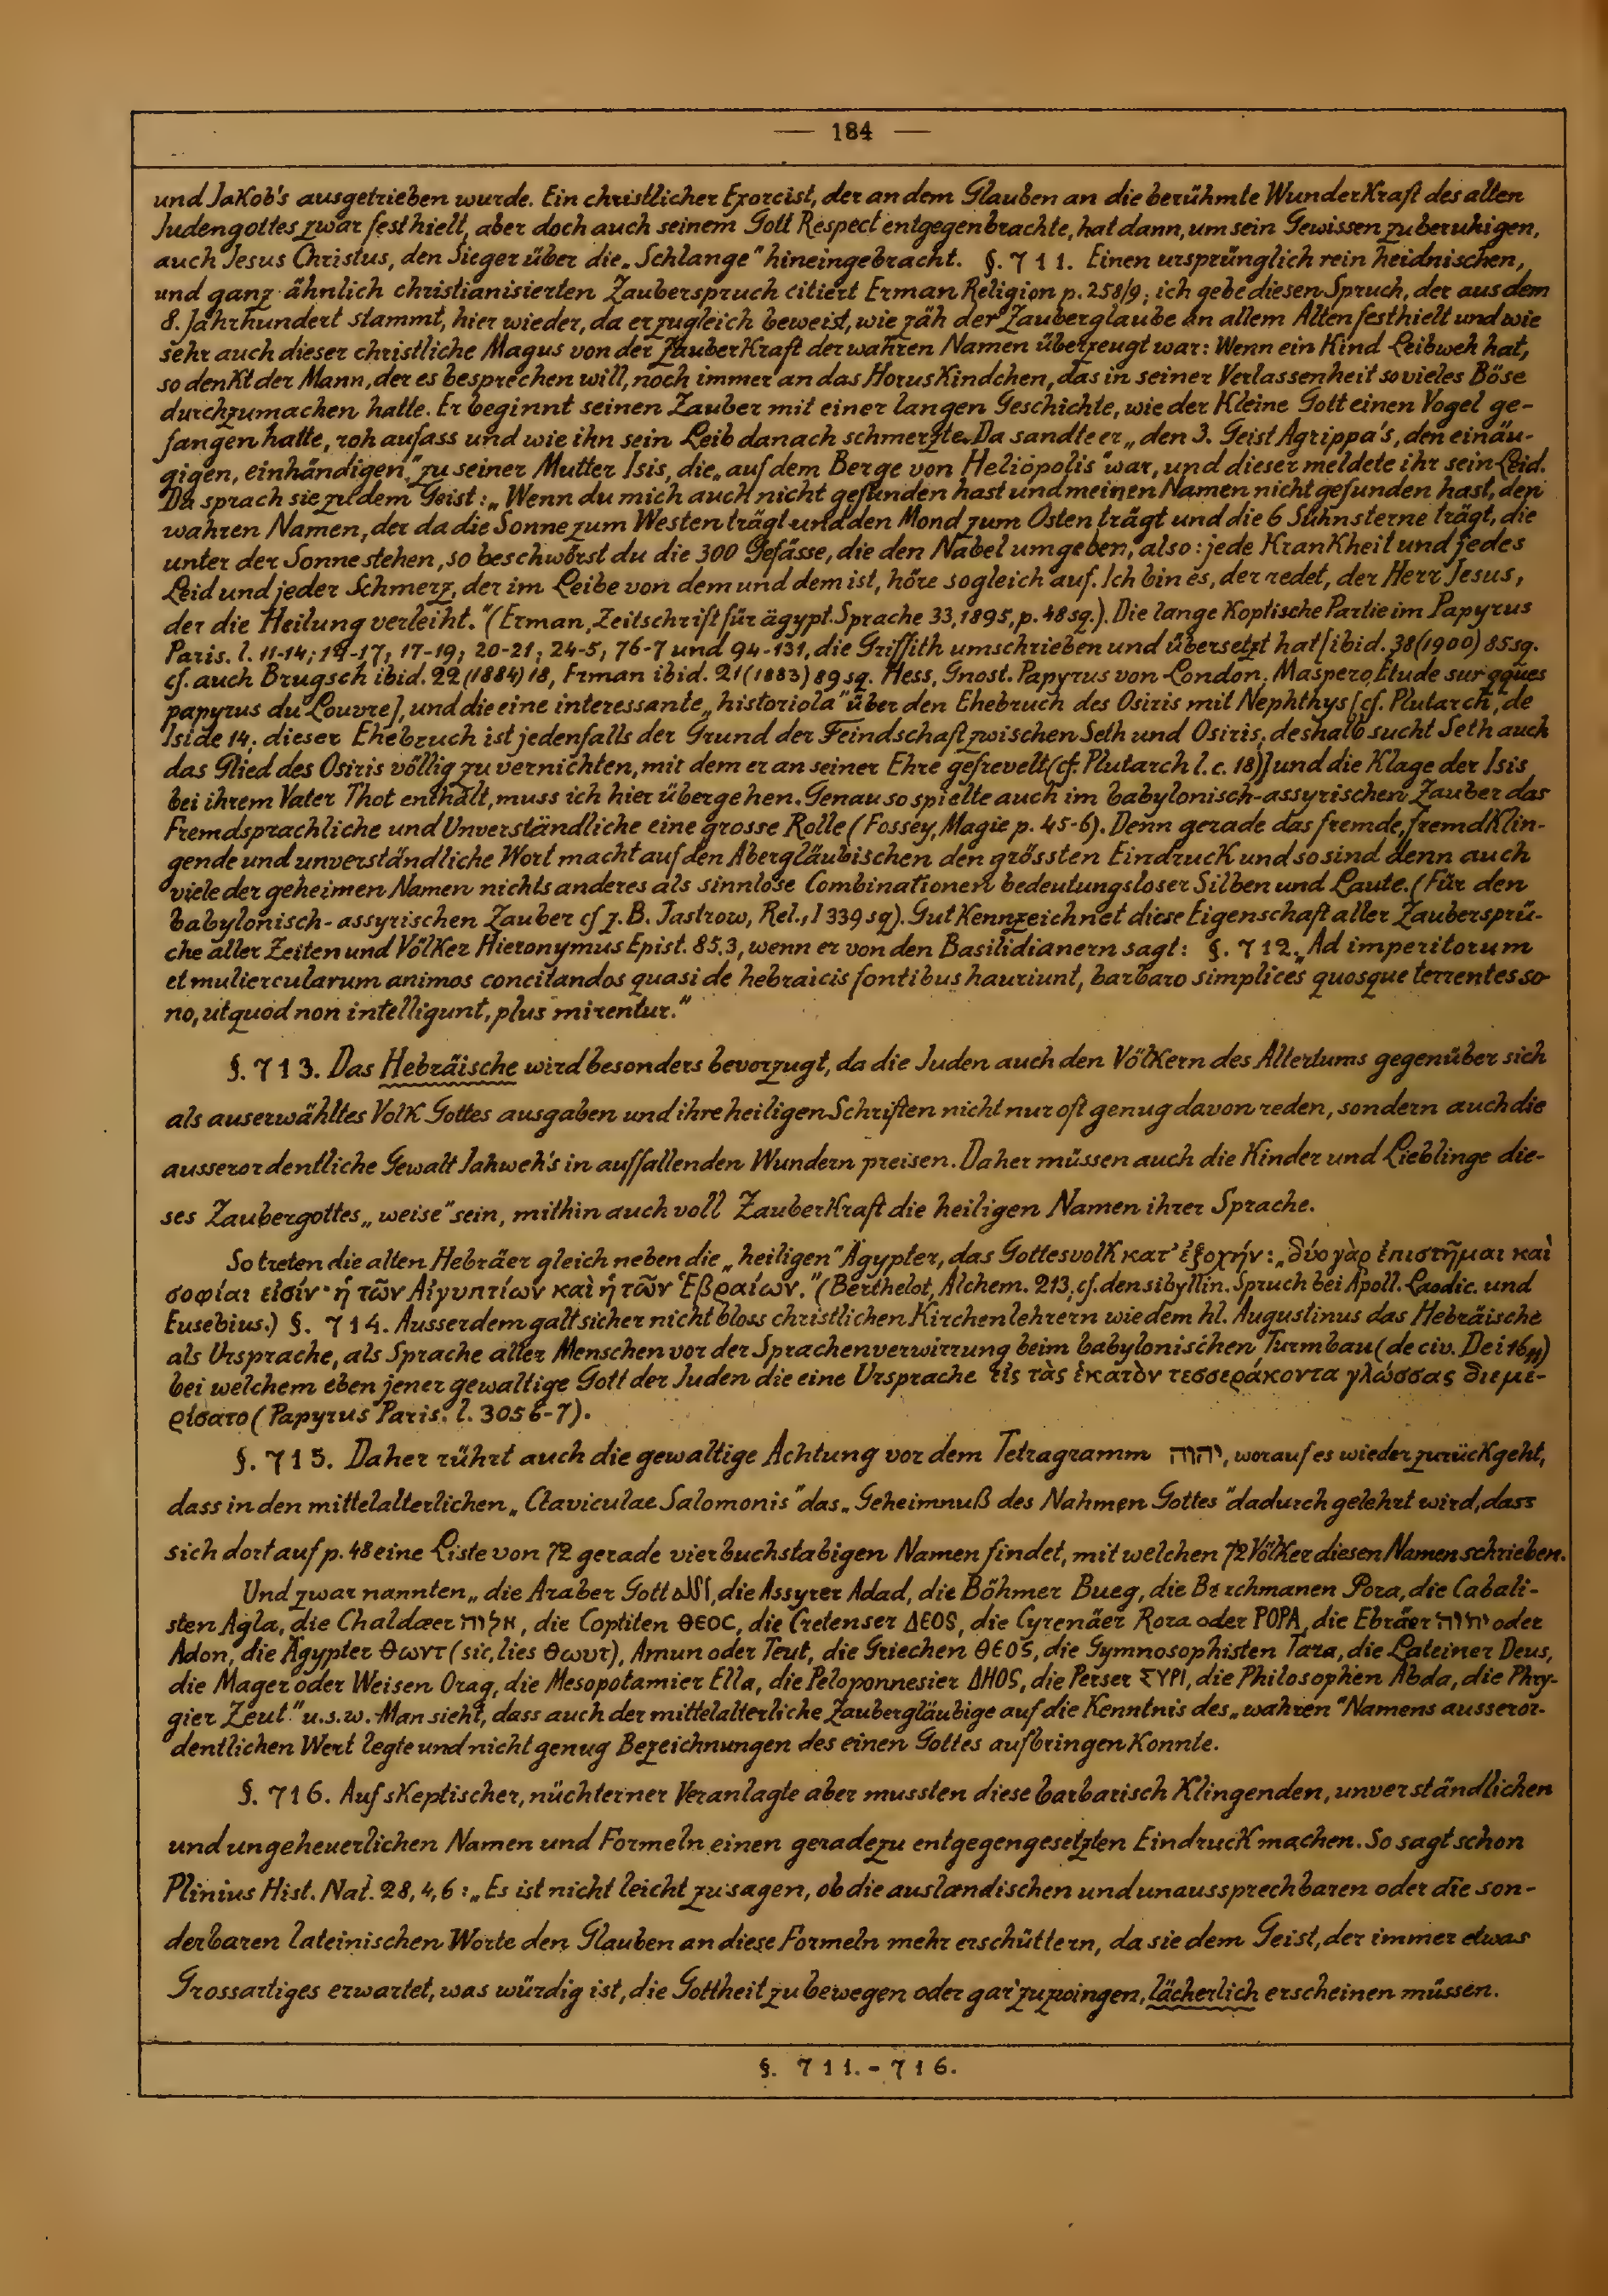 — 184 —
und Jakob's ausgetrieben wurde. Ein christlicher Exorcist, der an dem Glauben an die berühmte Wunderkraft des alten
Judengottes zwar festhielt, aber doch auch seinem Gott Respect entgegenbrachte, hat dann, um sein Gewissen zu beruhigen,
auch Jesus Christus, den Sieger über die „Schlange" hineingebracht. §. 711. Einen ursprünglich rein heidnischen,
und ganz ähnlich christianisierten Zauberspruch citiert Erman Religion p. 258/9; ich gebe diesen Spruch, der aus dem
8. Jahrhundert stammt, hier wieder, da er zugleich beweist, wie zäh der Zauberglaube an allem Alten festhielt und wie
sehr auch dieser christliche Magus von der Zauberkraft der wahren Namen überzeugt war: Wenn ein Kind Leibweh hat,
so denkt der Mann, der es besprechen will, noch immer an das Horuskindchen, das in seiner Verlassenheit so vieles Böse
durchzumachen hatte. Er beginnt seinen Zauber mit einer langen Geschichte, wie der kleine Gott einen Vogel ge-
fangen hatte, roh aufass und wie ihn sein Leib danach schmerzte. Da sandte er „den 3. Geist Agrippa's, den einäu-
gigen, einhändigen" zu seiner Mutter Isis, die „auf dem Berge von Heliopolis" war, und dieser meldete ihr sein Leid.
Da sprach sie zu dem Geist: „Wenn du mich auch nicht gefunden hast und meinen Namen nicht gefunden hast, den
wahren Namen, der da die Sonne zum Westen trägt und den Mond zum Osten trägt und die 6 Sühnsterne trägt, die
unter der Sonne stehen, so beschwörst du die 300 Gefässe, die den Nabel umgeben, also: jede Krankheit und jedes
Leid und jeder Schmerz, der im Leibe von dem und dem ist, höre sogleich auf. Ich bin es, der redet, der Herr Jesus,
der die Heilung verleiht." (Erman, Zeitschrift für ägypt. Sprache 33, 1895, p. 48 sq.). Die lange koptische Partie im Papyrus
Paris. l. 11-14; 14-17; 17-19; 20-21; 24-5; 76-7 und 94-131, die Griffith umschrieben und übersetzt hat [ibid. 38 (1900) 85 sq.
cf. auch Brugsch ibid. 22 (1884) 18, Erman ibid. 21 (1883) 89 sq. Hess, Gnost. Papyrus von London; Maspero, Etude sur qques
papyrus du Louvre], und die eine interessante „historiola" über den Ehebruch des Osiris mit Nephthys [cf. Plutarch, de
Iside 14; dieser Ehebruch ist jedenfalls der Grund der Feindschaft zwischen Seth und Osiris; deshalb sucht Seth auch
das Glied des Osiris völlig zu vernichten, mit dem er an seiner Ehre gefrevelt (cf. Plutarch l. c. 18)] und die Klage der Isis
bei ihrem Vater Thot enthält, muss ich hier übergehen. Genau so spielte auch im babylonisch-assyrischen Zauber das
Fremdsprachliche und Unverständliche eine grosse Rolle (Fossey, Magie p. 45-6). Denn gerade das fremde, fremdklin-
gende und unverständliche Wort macht auf den Abergläubischen den grössten Eindruck und so sind denn auch
viele der geheimen Namen nichts anderes als sinnlose Combinationen bedeutungsloser Silben und Laute. (Für den
babylonisch-assyrischen Zauber cf z. B. Jastrow, Rel., I 339 sq). Gut kennzeichnet diese Eigenschaft aller Zaubersprü-
che aller Zeiten und Völker Hieronymus Epist. 85,3, wenn er von den Basilidianern sagt: §. 712. „Ad imperitorum
et muliercularum animos concitandos quasi de hebraicis fontibus hauriunt, barbaro simplices quosque terrentes so-
no, ut quod non intelligunt, plus mirentur."
§. 713. Das Hebräische wird besonders bevorzugt, da die Juden auch den Völkern des Altertums gegenüber sich
als auserwähltes Volk Gottes ausgaben und ihre heiligen Schriften nicht nur oft genug davon reden, sondern auch die
ausserordentliche Gewalt Jahweh's in auffallenden Wundern preisen. Daher müssen auch die Kinder und Lieblinge die-
ses Zaubergottes „weise" sein, mithin auch voll Zauberkraft die heiligen Namen ihrer Sprache.
So treten die alten Hebräer gleich neben die „heiligen" Ägypter, das Gottesvolk κατ' ἐξοχήν: „δύο γὰρ ἐπιστῆμαι καὶ
σοφίαι εἰσίν· ἡ τῶν Αἰγυπτίων καὶ ἡ τῶν Ἑβραίων." (Berthelot, Alchem. 213; cf. den sibyllin. Spruch bei Apoll. Laodic. und
Eusebius.) §. 714. Ausserdem galt sicher nicht bloss christlichen Kirchenlehrern wie dem hl. Augustinus das Hebräische
als Ursprache, als Sprache aller Menschen vor der Sprachenverwirrung beim babylonischen Turmbau (de civ. Dei 16,11)
bei welchem eben jener gewaltige Gott der Juden die eine Ursprache εἰς τὰς ἑκατὸν τεσσεράκοντα γλώσσας διεμέ-
ρίσατο (Papyrus Paris. l. 3056-7).
§. 715. Daher rührt auch die gewaltige Achtung vor dem Tetragramm יהוה, worauf es wieder zurückgeht,
dass in den mittelalterlichen „Claviculae Salomonis" das „Geheimnuß des Nahmen Gottes" dadurch gelehrt wird, dass
sich dort auf p. 48 eine Liste von 72 gerade vierbuchstabigen Namen findet, mit welchen 72 Völker diesen Namen schrieben.
Und zwar nannten „die Araber Gott الله, die Assyrer Adad, die Böhmer Bueg, die Brachmanen Pora, die Cabali-
sten Agla, die Chaldæer אלוה, die Coptiten ΘΕΟC, die Cretenser ΔΕΟS, die Cyrenäer Rora oder POPA, die Ebräer יהוה oder
Adon, die Ägypter Θωντ (sic, lies Θωυτ), Amun oder Teut, die Griechen ΘΕΟS, die Gymnosophisten Tara, die Lateiner Deus,
die Mager oder Weisen Orag, die Mesopotamier Ella, die Peloponnesier ΔΗΟS, die Perser ΣΥΡΙ, die Philosophen Abda, die Phry-
gier Zeut" u.s.w. Man sieht, dass auch der mittelalterliche Zaubergläubige auf die Kenntnis des „wahren" Namens ausseror-
dentlichen Wert legte und nicht genug Bezeichnungen des einen Gottes aufbringen konnte.
§. 716. Auf skeptischer, nüchterner Veranlagte aber mussten diese barbarisch klingenden, unverständlichen
und ungeheuerlichen Namen und Formeln einen geradezu entgegengesetzten Eindruck machen. So sagt schon
Plinius Hist. Nat. 28, 4, 6: „Es ist nicht leicht zu sagen, ob die auslændischen und unaussprechbaren oder die son-
derbaren lateinischen Worte den Glauben an diese Formeln mehr erschüttern, da sie dem Geist, der immer etwas
Grossartiges erwartet, was würdig ist, die Gottheit zu bewegen oder gar zu zwingen, lächerlich erscheinen müssen.
§. 711. - 716.